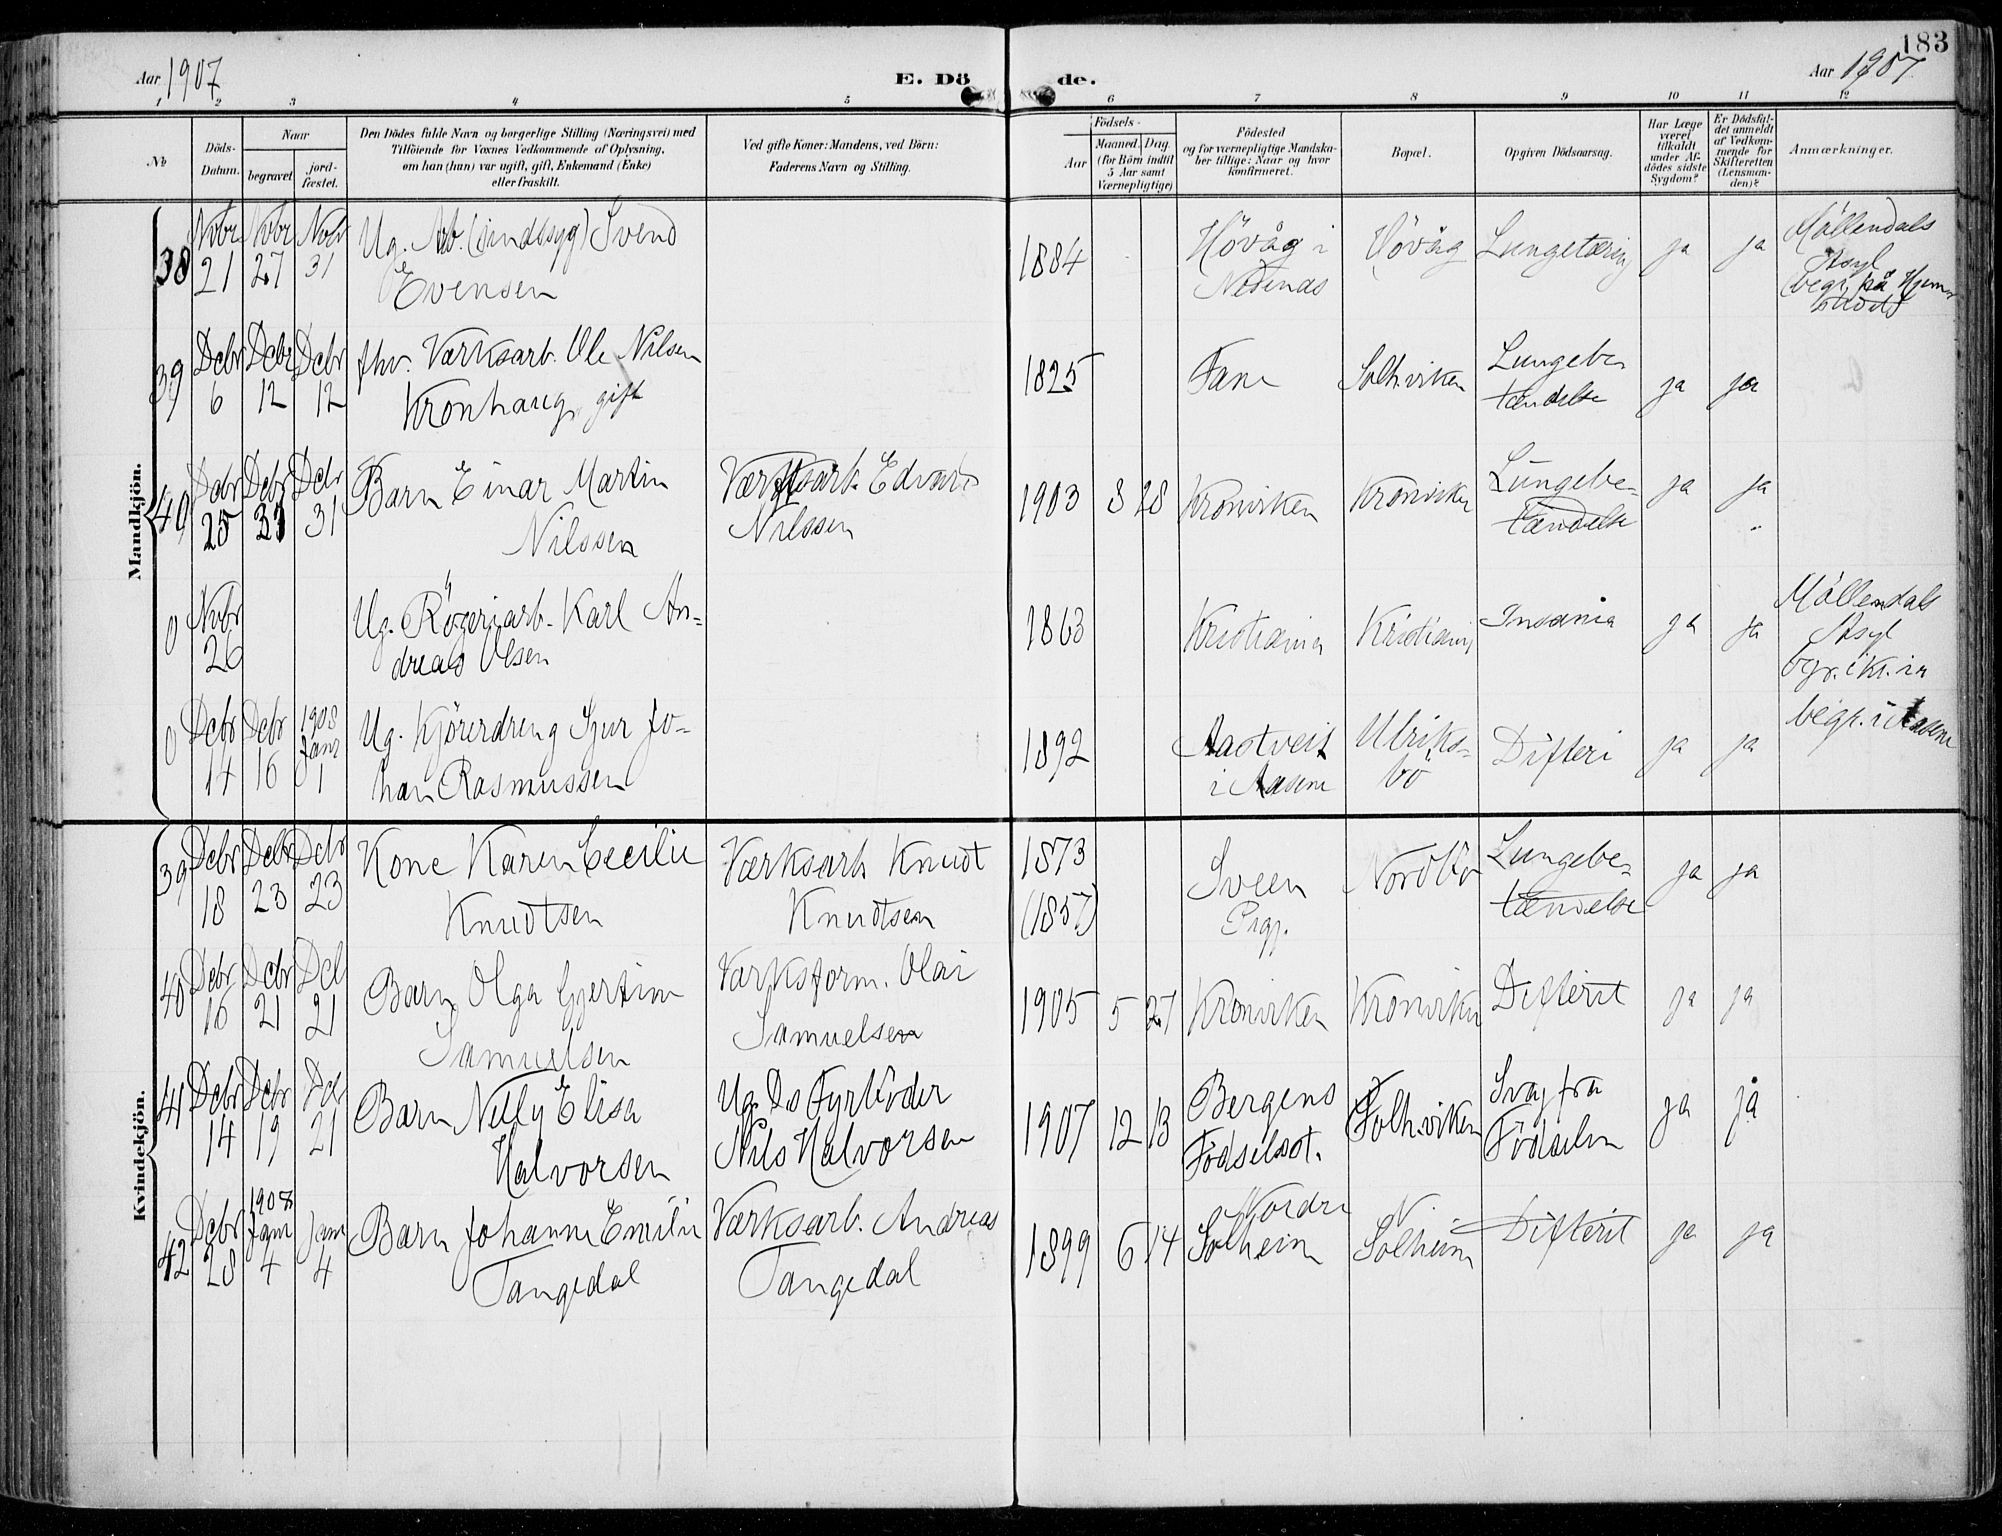 183
Aar 1907
E. Döde.
Aar 1907
1 2 3 4 5 6 7 8 9 10 11 12
No
Döds-
Datum.
Naar
begravet.
jord-
fæstet.
Den Dödes fulde Navn og borgerlige Stilling (Næringsvei) med
Tilföiende for Voxnes Vedkommende af Oplysning,
om han (hun) var ugift, gift, Enkemand (Enke)
eller fraskilt.
Ved gifte Koner: Mandens, ved Börn:
Faderens Navn og Stilling.
Födsels-
Aar
Maaned. Dag.
(for Börn indtil
5 Aar samt
Værnepligtige)
Födested
og for værnepligtige Mandska-
ber tillige: Naar og hvor
konfirmeret.
Bopæl.
Opgiven Dödsaarsag.
Har Læge
været
tilkaldt
under Af-
dödes sidste
Sygdom?
Er Dödsfal-
det anmeldt
af Vedkom-
mende for
Skifteretten
(Lensman-
den)?
Anmærkninger.
Mandkjön.
38 Nvbr 21 Nvbr 27 Nvbr 31 Ug. Arb. (sindssyg) Svend
Evensen
1884 Hövåg i
Nedenæs
Hövåg Lungetæring ja ja Möllendals
Asyl
begr. på Hjem-
stedet
39 Dcbr 6 Dcbr 12 Dcbr 12 fhv. Værksarb. Ole Nilsen
Kronhaug, gift
1825 Fane Solh.viken Lungebe-
tændelse
ja ja
40 Dcbr 25 Dcbr 31 Dcbr 31 Barn Einar Martin
Nilssen
Værksarb. Edvard
Nilssen
1903 8 28 Kronviken Kronviken Lungebe-
tændelse
ja ja
0 Nvbr 26 Ug. Rögeriarb. Karl An-
dreas Olsen
1863 Kristiania Kristiania Insania ja ja Möllendals
Asyl
bgr. i Kr.ia
0 Dcbr 14 Dcbr 16 1908 Janr 1 Ug. Kjörerdreng Sjur Jo-
han Rasmussen
1892 Aastveit
i Aasene
Ulriks-
bö
Difteri ja ja begr. i Aasene
Kvindekjön.
39 Dcbr 18 Dcbr 23 Dcbr 23 Kone Karen Cecilie
Knudtsen
Værksarb. Knudt
Knudtsen
1873
(1857)
Sveen
Prgj.
Lungebe-
tændelse
ja ja
40 Dcbr 16 Dcbr 21 Dcb 21 Barn Olga Gjertine
Samuelsen
Værksform. Olai
Samuelsen
1905 5 27 Kronviken Kronviken Difterit ja ja
41 Dcbr 14 Dcbr 19 Dcbr 21 Barn Nelly Elisa
Halvorsen
Ug. Ds Fyrböder
Nils Halvorsen
1907 12 13 Bergens
Födselsst.
Solh.viken Svag fra
Födselen
ja ja
42 Dcbr 28 1908 Janr 4 Janr 4 Barn Johanne Emilie
Tangedal
Værksarb. Andreas
Tangedal
1899 6 14 Nordre
Solheim
N.
Solheim
Difterit ja ja